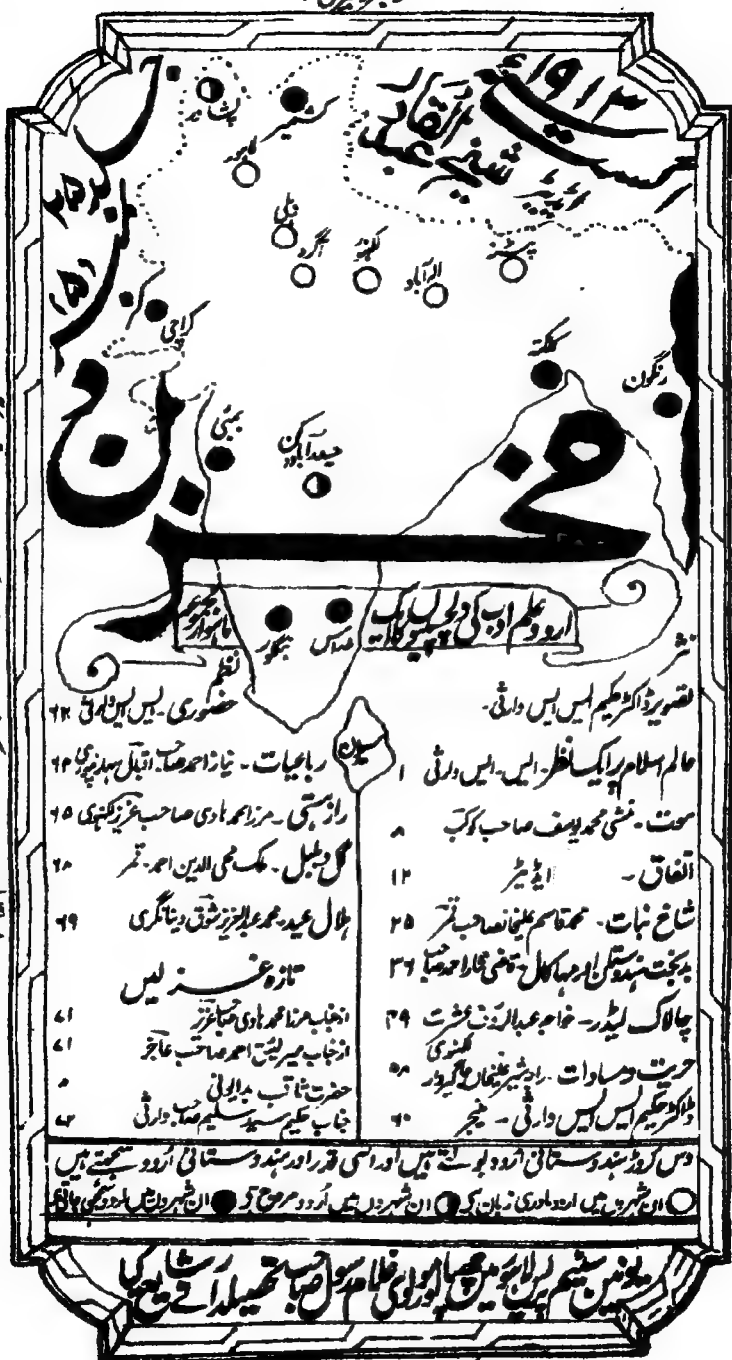 اگست ۱۹۱۳ء
اڈیٹر شیخ عبدالقادر
جلد ۲۵
نمبر (۵)
پشاور
کشمیر
لاہور
دہلی
آگرہ
لکھنؤ
الہ آباد
پٹنہ
کراچی
کلکتہ
رنگون
بمبئی
حیدرآباد دکن
مخزن
اردو علم ادب کی دلچسپیوں کا ایک
ماہوار مجموعہ
بنگلور
مدراس
سیلون
نثر
تصویر ڈاکٹر حکیم ایس ایس وارثی۔
عالم اسلام پر ایک نظر۔ ایس۔ ایس وارثی ۱
موت۔ منشی محمد یوسف صاحب کوکب ۸
اتفاق۔ ایڈیٹر ۱۲
شاخ نبات۔ محمد قاسم علیخانصاحب قمر ۲۵
بدبخت ہندوستان اور مہا کال۔ قاضی مختار احمد صاحب ۳۶
چالاک لیڈر۔ خواجہ عبدالرؤف عشرت لکھنوی ۳۹
حریت و مساوات۔ راؤ شبیر علیخاں جاگیردار ۵۸
ڈاکٹر حکیم ایس ایس وارثی۔ منیجر ۶۰
نظم
حضوری۔ ایس ایس وارثی ۶۲
رباعیات۔ نیاز احمد صاحب اقبال سہارنپوری ۶۴
راز ہستی۔ مرزا محمد ہادی صاحب عزیز لکھنوی ۶۵
گل و بلبل۔ ملک محی الدین احمد۔ قمر ۶۸
ہلال عید۔ محمد عبدالعزیز شوق دینانگری ۶۹
تازہ غزلیں
از جناب مرزا محمد ہادی صاحب عزیز ۷۱
از جناب میر لئیق احمد صاحب عاجز ۷۱
حضرت ثاقب بدایونی ۸
جناب حکیم سید سلیم صاحب وارثی ۷۲
دس کروڑ ہندوستانی اردو بولتے ہیں اور اسی قدر اور ہندوستانی اردو سمجھتے ہیں
ان شہروں میں اردو مادری زبان ہے ان شہروں میں اردو مروج ہے ان شہروں میں اردو سمجھی جاتی ہے
یونین سٹیم پریس لاہور میں چھپا اور مولوی غلام رسول صاحب تحصیلدار نے شایع کیا